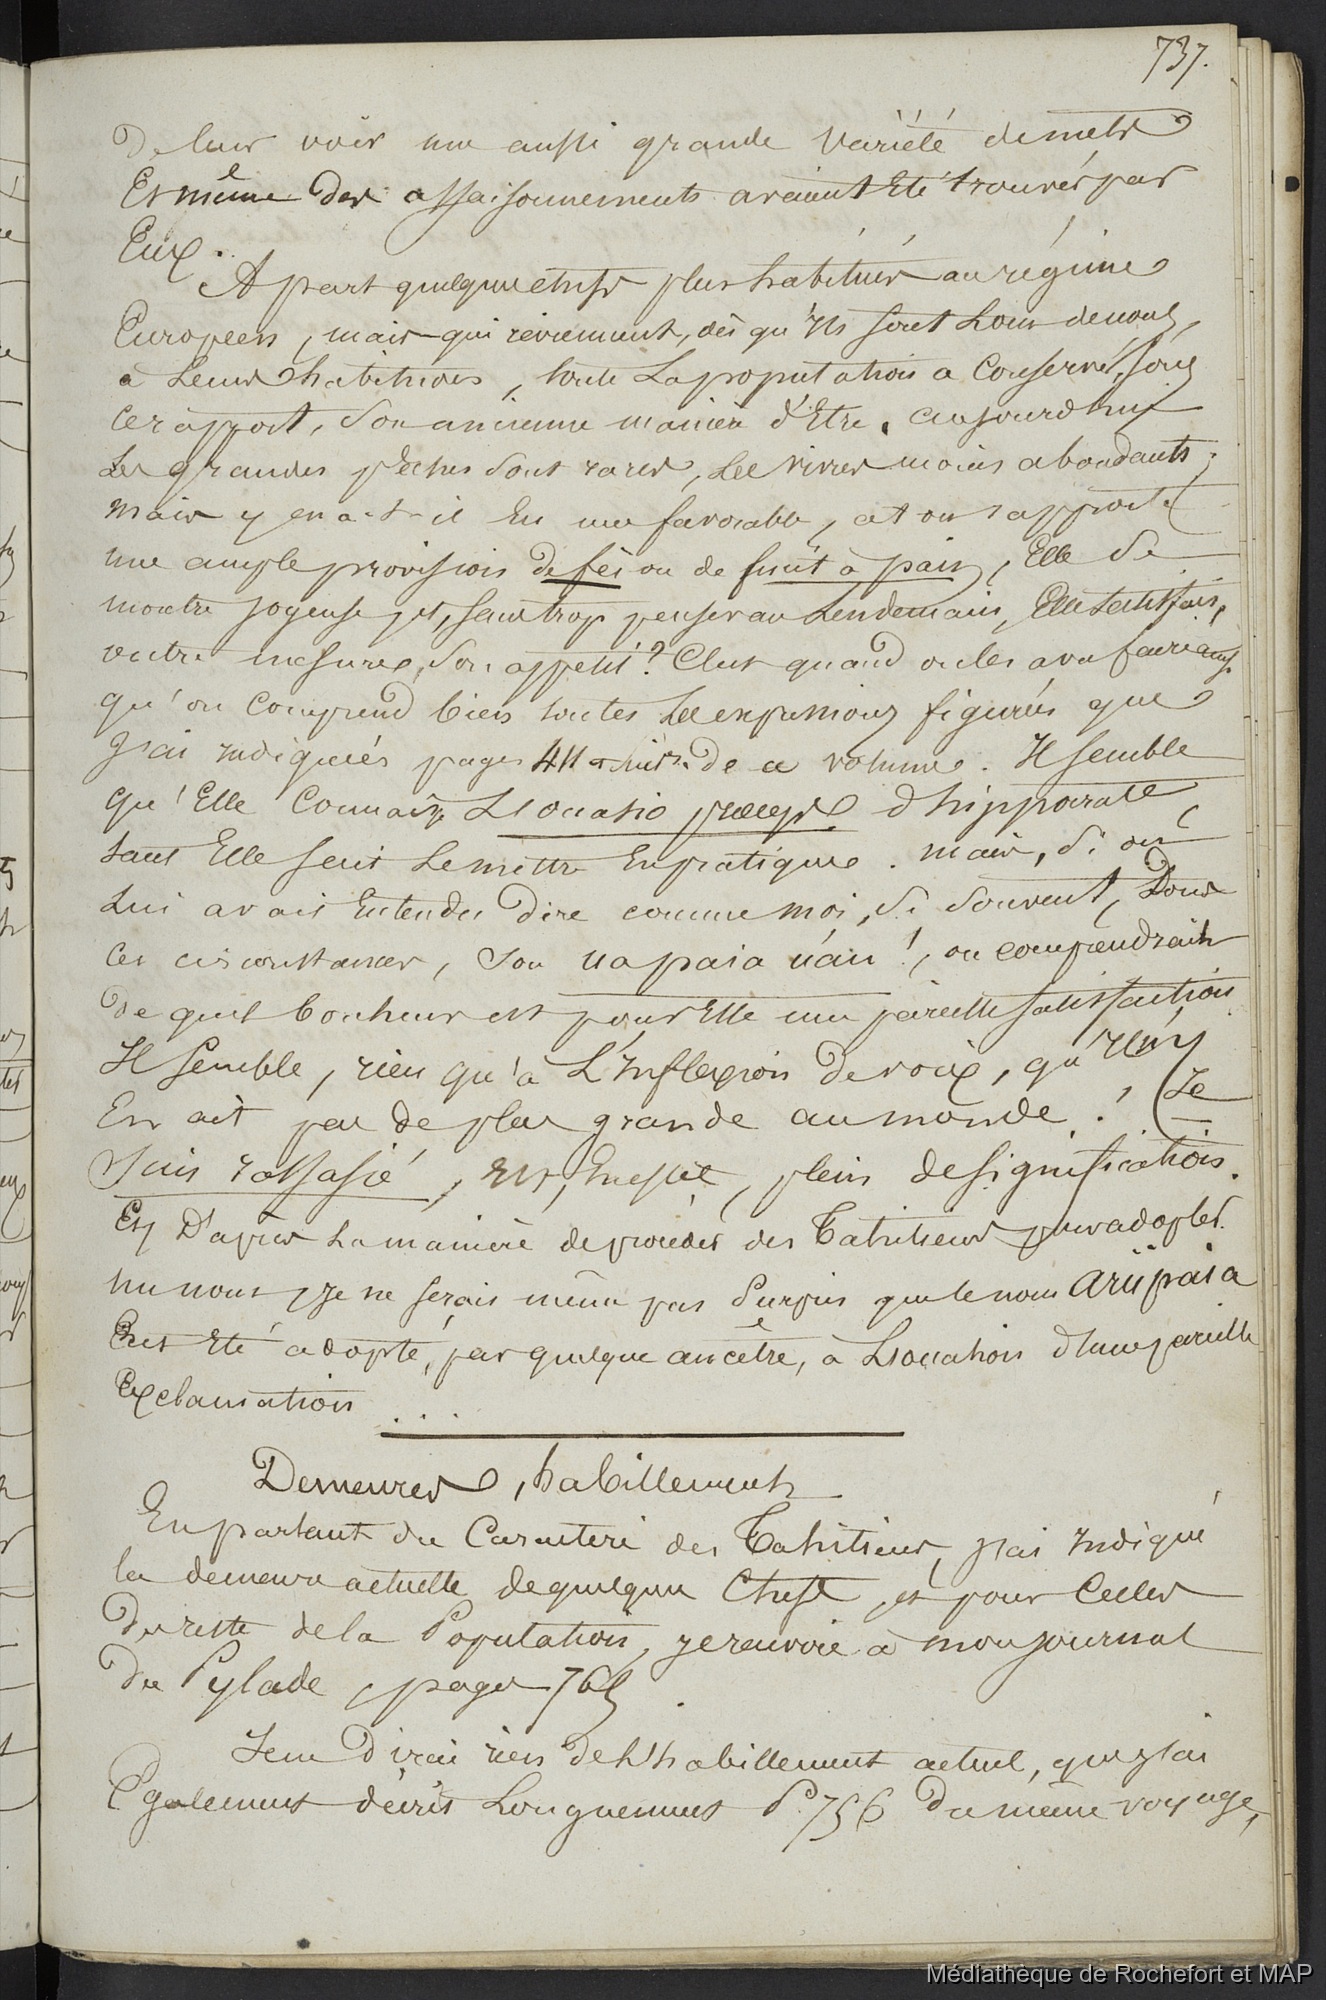 737.
De leur voir une aussi grande variété de mets
Et même des assaisonnements avaient Eté trouvés par
Eux.
A part quelques chefs plus habitués au régime
Européen, mais qui reviennent, dès qu'ils sont Loin de nous,
à Leurs habitudes, toute La population a Conservé, sous
ce rapport, Son ancienne manière d'Etre. aujourd'hui
Les grandes pêches sont rares, Les vivres moins abondants;
mais y en a-t-il Eu une favorable, et on rapporte
une ample provision de féi ou de fruit à pain, Elle se
montre joyeuse et, sans trop penser au Lendemain, Elle satisfait,
outre mesure, Son appétit? C'est quand on les a vu faire ainsi
qu'on Comprend bien toutes Les expressions figurées que
J'ai indiquées pages 411 et suiv. de ce volume. Il semble
qu'Elle Connaisse L'occasio præceps d'hippocrate,
tant Elle sait Le mettre En pratique. mais, Si on
Lui avait Entendu Dire comme moi, Si Souvent, Dans
Ces circonstances, Son ua paia uau!, on comprendrait
De quel bonheur est pour Elle une pareille satisfaction.
Il Semble, rien qu'à L'Inflexion de voix, qu'il n'y
En ait pas de plus grande au monde! (Je
Suis rassasié, Est, En effet, plein de signification.
Et D'après La manière de procéder des Tahitiens pour adopter
un nom, Je ne serais même pas Surpris que le nom Ariipaia
Eut Eté adopté, par quelque ancêtre, à L'occasion d'une pareille
Exclamation ...
Demeures, habillements
En parlant du Caractère des Tahitiens, J'ai Indiqué
la demeure actuelle de quelques Chefs, et pour Celles
Du reste de la Population, Je renvoie à mon Journal
Du Pylade, pages 765.
Je ne Dirai rien de L'habillement actuel, que J'ai
Egalement décrit Longuement P. 756 Du même voyage,
Médiathèque de Rochefort et MAP